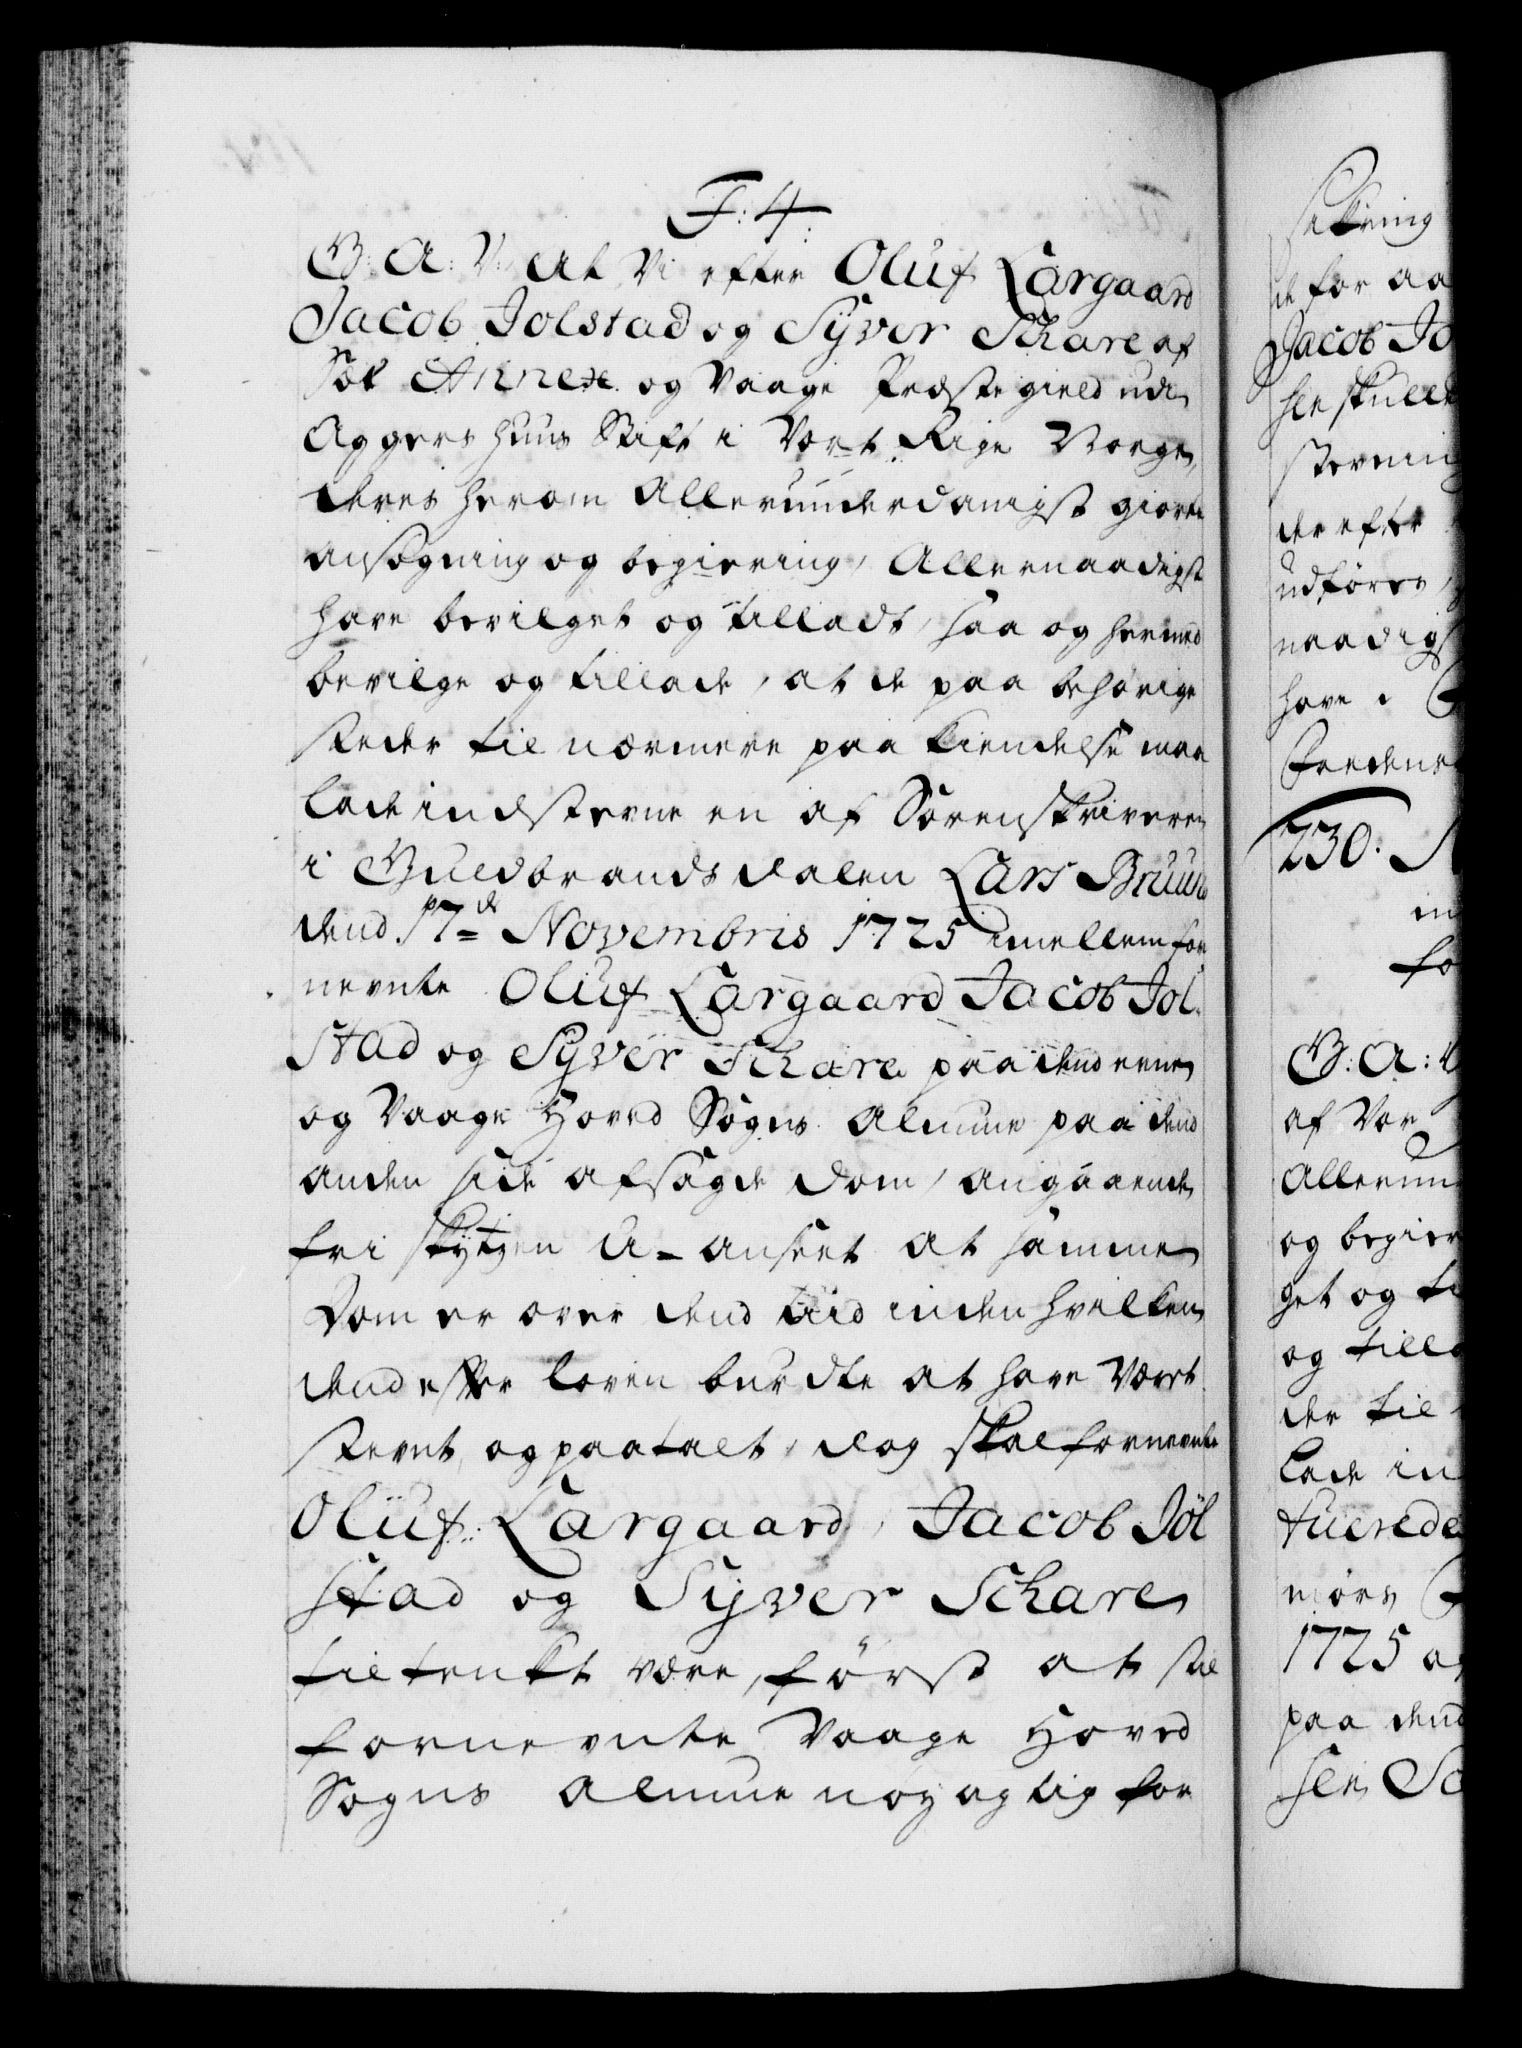 F: 4.
G: A: V: At Vi efter Oluf Largaard
Jacob Jolstad og Syver Schare af
Søk Annex og Vaage Præstegield udi
Aggershuus Stift i Vort Rige Norge,
deres herom Allerunderdanigst giorte
ansøgning og begiering, Allernaadigst
have bevilget og tilladt, saa og hermed
bevilge og tillade, at de paa behørige
steder til nærmere paa kiendelse maa
lade indstevne en af Sorenskriveren
i Guldbrandsdalen Lars Bruun
dend 17de Novembris 1725 imellem for
nevnte Oluf Largaard Jacob Jol-
stad og Syver Schare paa dend eene
og Vaage Hoved Sogns Almue paa dend
anden side afsagde Dom, angaaende
fri skytzen u-anseet at samme
Dom er over dend tiid inden hvilken
dend efter loven burdte at have været
stevnt og paatalt, dog skal fornevnte
Oluf Largaard, Jacob Jol
stad og Syver Schare
tiltenkt være, først at stil
fornevnte Vaage Hoved
Sogns Almue nøyagtig for
sikring
de for aa
Jacob Jo
sle skulle
stevning
der efter
udføres,
naadigst
have i
Fredens
730.
in
fo
G: A: V
af Vor
Allerun
og begier
get og ti
og tilla
der til
lade in
tuerede
mørs
1725 a
paa dend
sle So